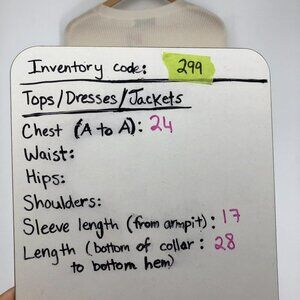 Inventory code: 299
Tops/Dresses/Jackets
Chest (A to A): 24
Waist:
Hips:
Shoulders:
Sleeve length (from armpit): 17
Length (bottom of collar: 28
to bottom hem)